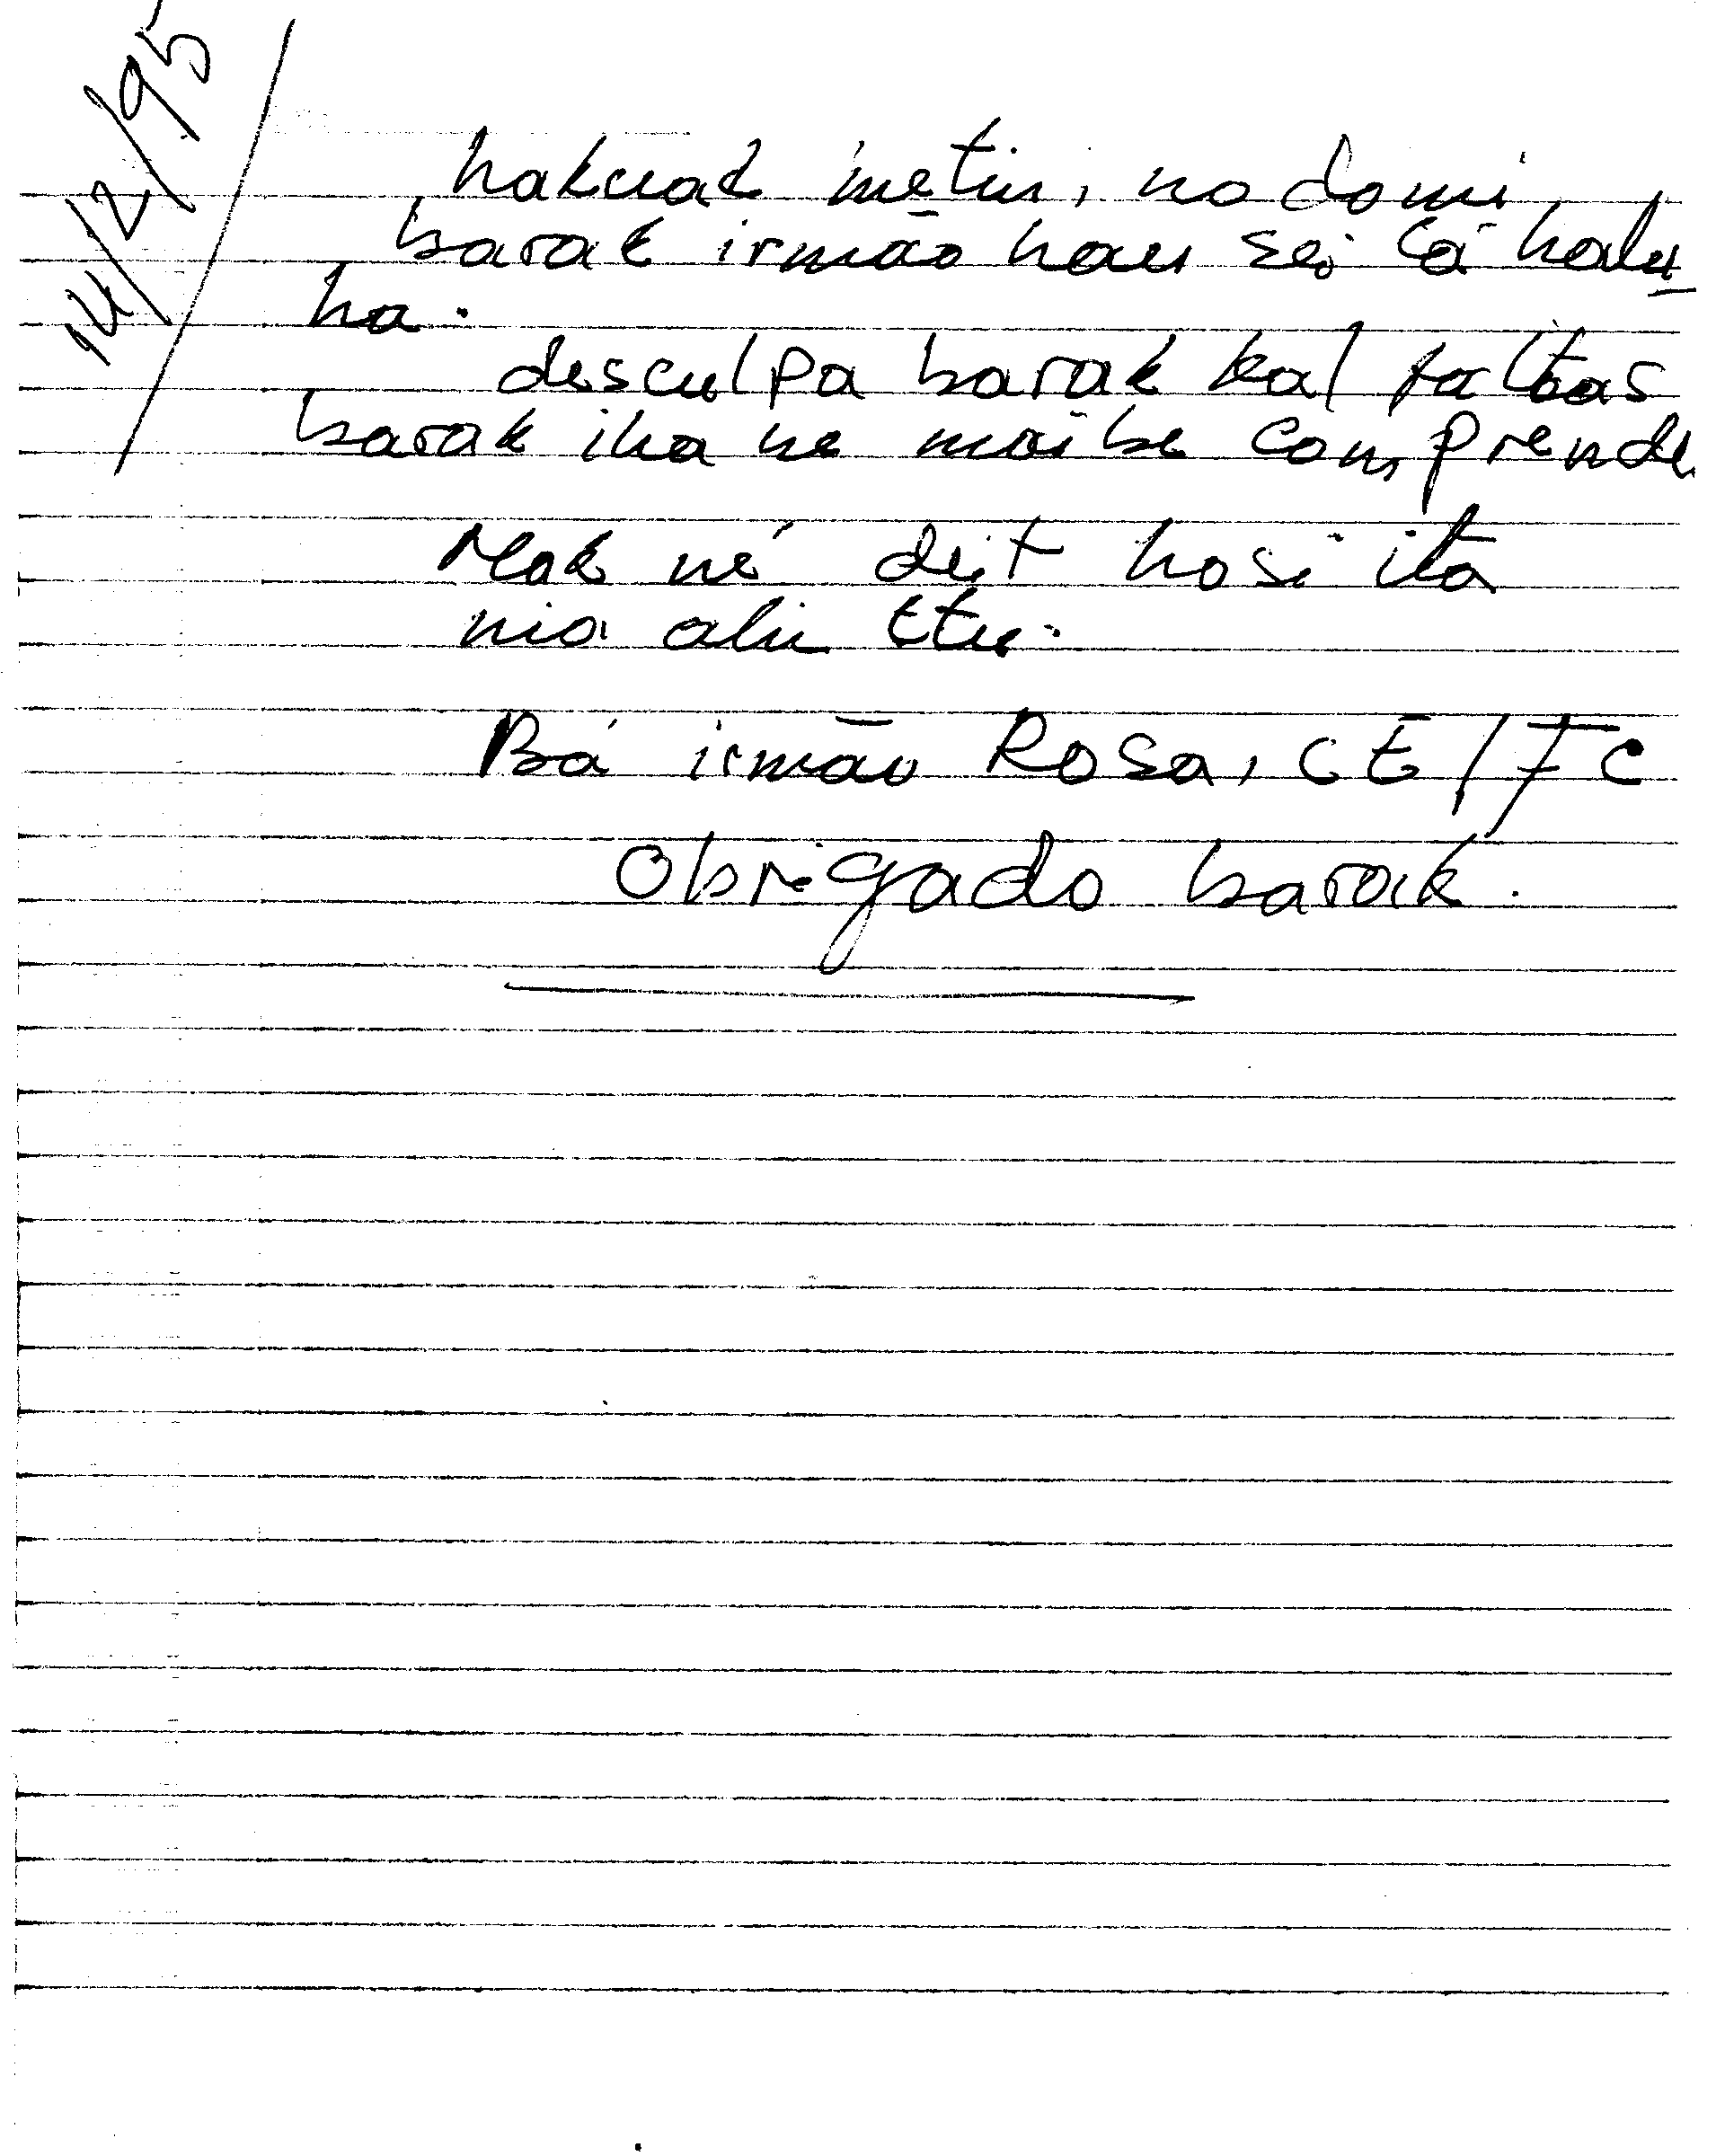 14/2/95
hakuak metin, no domi
barak irmão hau sei lá halu
ha.
desculpa barak kal faltas
barak iha ne maibe comprende
Mak né deit hosi ita
nia alin ttu.
Bá irmão Rosa, CE/FC
Obrigado barak.